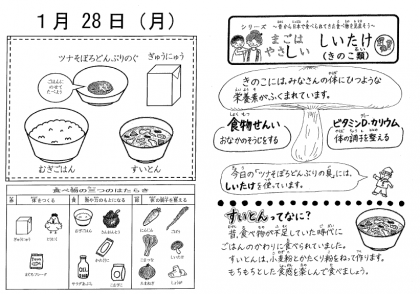 1月28日（月）
ツナそぼろどんぶりのぐ
ぎゅうにゅう
ごはんに
のせて
たべよう
むぎごはん
すいとん
食べ物の三つのはたらき
体をつくる
体の調子を整える
シリーズ ～昔から日本で食べられてきた食べ物を見直そう～
まごは
やさしい
しいたけ
（きのこ類）
きのこには、みなさんの体にひつような
栄養素がふくまれています。
食物せんい
おなかのそうじをする
ビタミンD・カリウム
体の調子を整える
今日の「ツナそぼろどんぶりの具」には、
しいたけを使っています。
すいとんってなに？
昔、食べ物が不足していた時代に
ごはんのかわりに食べられていました。
すいとんは、小麦粉とかたくり粉をねって作ります。
もちもちとした食感を楽しんで食べましょう。